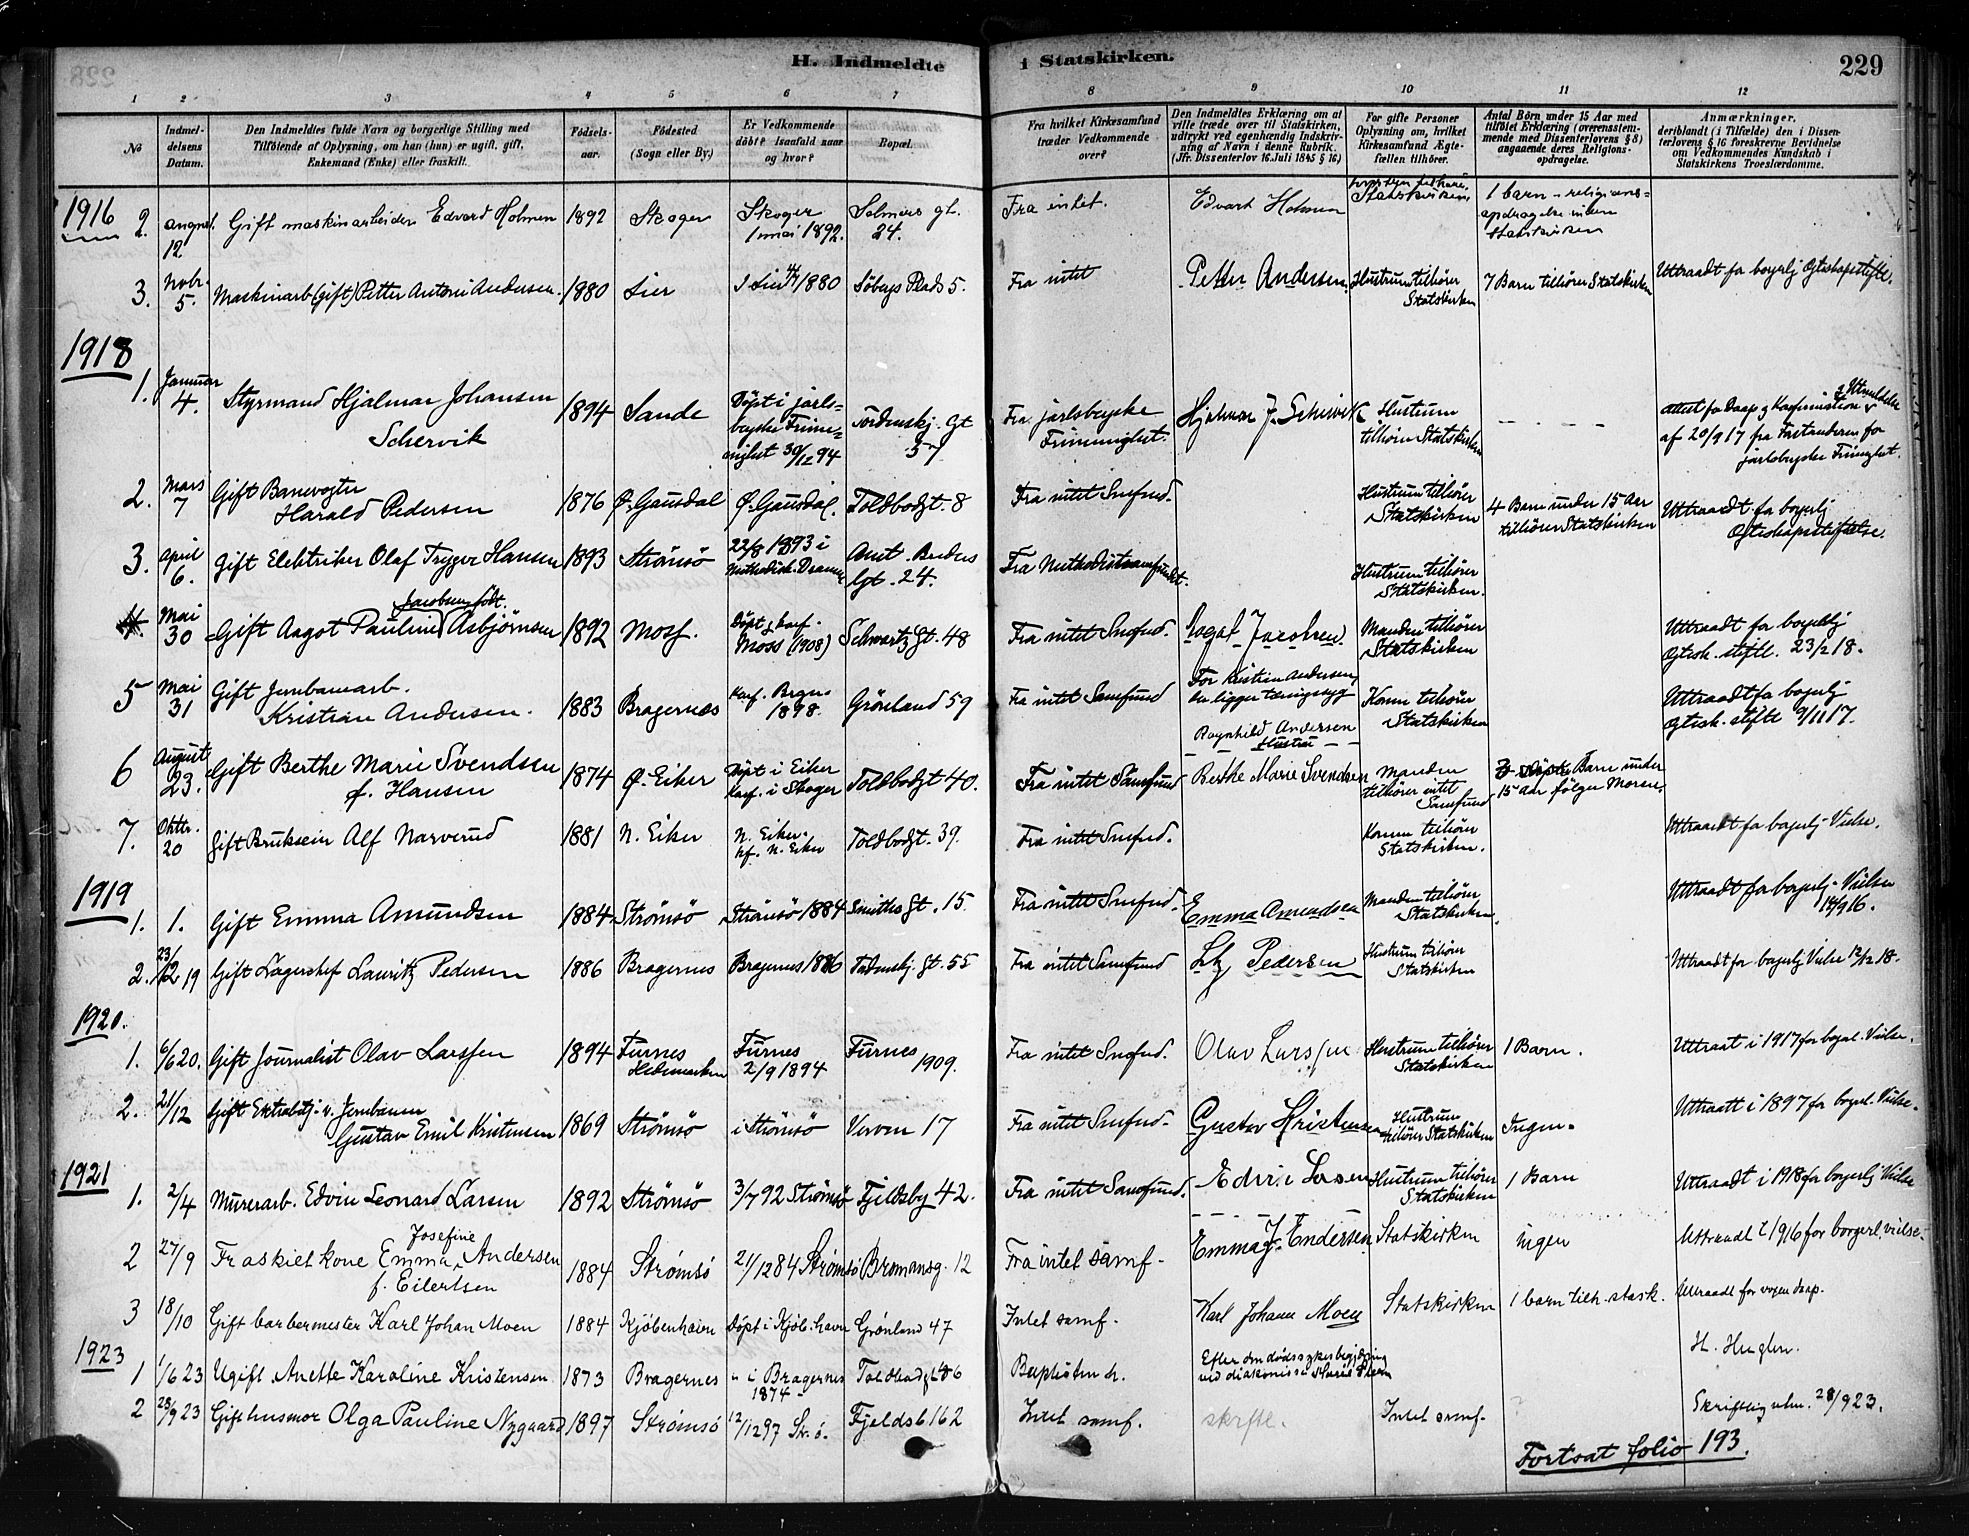 H. Indmeldte i Statskirken.
229
1 2 3 4 5 6 7 8 9 10 11 12
No
Indmeldelsens Datum.
Den Indmeldtes fulde Navn og borgerlige Stilling med
Tilføiende af Oplysning, om han (hun) er ugift, gift,
Enkemand (Enke) eller fraskilt.
Fødselsaar.
Fødested
(Sogn eller By.)
Er Vedkommende
døbt? Isaafald naar
og hvor?
Bopæl.
Fra hvilket Kirkesamfund
træder Vedkommende
over?
Den Indmeldtes Erklæring om at
ville træde over til Statskirken,
udtrykt ved egenhændig Indskriv-
ning af Navn i denne Rubrik.
(Jfr. Dissenterlov 16. Juli 1845 § 16)
For gifte Personer
Oplysning om, hvilket
Kirkesamfund Ægte-
fællen tilhører.
Antal Börn under 15 Aar med
tilföiet Erklæring (overensstem-
mende med Dissenterlovens § 8)
angaaende deres Religions-
opdragelse.
Anmærkninger,
deriblandt (i Tilfælde) den i Dissen-
terlovens § 16 foreskrevne Bevidnelse
om Vedkommendes Kundskab i
Statskirkens Troeslærdomme.
1916
2. august 12. Gift maskinarbeider Edvard Holmen 1892 Skoger Skoger 1 mai 1892. Selmers gt. 24. Fra intet. Edvart Holmen Statskirken. 1 barn - religions=opdragelse inden Statskirken
3. Nobr. 5. Maskinarb (gift) Petter Antoni Andersen. 1880 Lier I Lier 4/7 1880 Söbergs Plads 5. Fra intet Petter Andersen. Hustrum tilhörer Statskirken 7 Barn tilhörer Statskirken Uttraadt fo borgerlig Ægteskapsstiftl.
1918
1. Januar 4. Styrmand Hjalmar Johansen Schervik 1894 Sande Döpt i jarls=bergske Frime=nighet 30/12 94 Tordenskj. Gt 57 Fra jarlsbergske Frimenighet. Hjalmar J. Schervik Hustrum tilhörer Statskirken - - - - Attest fo Daap g Konfirmation & Utmeldelse af 20/9 17 fra Forstanderen for jarlsbergske Frimenghet.
2. Mars 7 Gift Banevogter Harald Pedersen 1876 Ø. Gausdal Ø. Gausdal. Toldbodgt. 8 Fra intet Smfund. Hustrum tilhörer Statskirken 4 Barn under 15 Aar tilhörer Statskirken Uttraadt fo borgerlj Ægteskapsstiftelse.
3. April 6. Gift Elektriker Olaf Trygve Hansen 1893 Strömsö 22/8 1893 i Methodistk. Dramm Amt. Breders Gt. 24. Fra Methodistsamfundet. Hustrum tilhörer Statskirken.
4. Mai 30 Gift Aagot Pauline Jacobsen födt Asbjörnsen 1892 Moss. Döpt g konf. Moss (1908) Schwartz Gt. 48 Fra intet Smfund. Aagot Jacobsen Manden tilhörer Statskirken Uttraadt fo borgerlj Ægtesk. stiftl. 23/2 18.
5 Mai 31 Gift Jernbanearb. Kristian Andersen. 1883 Bragernæs Konf. Bragnæs 1898. Grönland 59 Fra intet Samfund For Kristian Andersen, der ligger tæringssyg Ragnhild Andersen Hustru Konen tilhörer Statskirken Uttraadt fo borgerlj Ægtesk. stiftl 9/11 17.
6 August 23. Gift Berthe Marie Svendsen f. Hansen 1874 Ø. Eiker Döpt i Eiker Konf. i Skoger Toldbodgt 40. Fra intet Samfund Berthe Marie Svendsen Manden tilhörer intet Samfund Barn under 15 Aar følger Moren.
7. Oktbr. 20 Gift Bruksein Alf Narverud 1881 N. Eiker N. Eiker. kf. N. Eiker Toldbodgt. 39. Fra intet Smfund. Konen tilhörer Statskirken. Uttraadt fo borgerlj Vielse.
1919
1. 1. Gift Emma Amundsen 1884 Strömsö Strömsö 1884 Smiths Gt. 15. Fra intet Smfund. Emma Amundsen Manden tilhörer Statskirken. Uttraadt for borgerlj Vielse 14/9 16.
2. 23/12 19 Gift Lagerchef Lauritz Pedersen 1886 Bragernes Bragernes 1886 Tordenskj. Gt. 55 Fra intet Samfund Ltz Pedersen Hustrum tilhörer Statskirken Uttraadt for borgerlj Vielse 12/12 18.
1920.
1. 6/6 20. Gift Journalist Olav Larssen 1894 Furnes Hedemarken Furnes 2/9 1894 Furnes 1909. Fra intet Smfund. Olav Larssen Hustrum tilhörer Statskirken 1 Barn. Uttraat i 1917 for borgel. Vielse.
2. 21/12 Gift Extrabtj. v. Jernbanen Gustav Emil Kristensen 1869 Strömsö i Strömsö Verven 17 Fra intet Smfund. Gustav Kristensen Hustrum tilhörer Statskirken Ingen. Uttraatt i 1897 for borgel. Vielse.
1921
1. 2/4 Murerarb. Edvin Leonard Larsen 1892 Strömsö 3/7 92 Strömsö Fjeldsby 42. Fra intet Samfund. Edvin Larsen Hustrum tilhörer Statskirken 1 Barn Uttraadt i 1918 for borgerlj Vielse
2 27/9 Fraskilt kone Emma Josefine Andersen f. Eilertsen 1884 Strømsø 21/12 84 Strømsø Bromansg. 12 Fra intet samf. Emma J. Andersen Statskirken ingen Uttraadt i 1916 for borgerl. vielse.
3 18/10 Gift barbermester Karl Johan Moen 1884 Kjöbenhavn Døpt i Kjöb.havn Grønland 47 Intet samf. Karl Johann Moen Statskirken 1 barn tilh. statsk. Uttraadt for
1923
1 1/6 23 Ugift Anette Karoline Kristensen 1873 Bragernes " i Bragernes 1874 Toldbodgt 66 Baptistm. Efter om dødssykes begjæring ved diakonisse H. Huglen.
2 28/9 23 Gift husmor Olga Pauline Nygaard 1897 Strömsö 12/12 97 Str.ö. Fjeldsb 162 Intet samf. skrftl. Intet samf. ? Skriftlig utm. 28/9 23.
Fortsat folio 193.